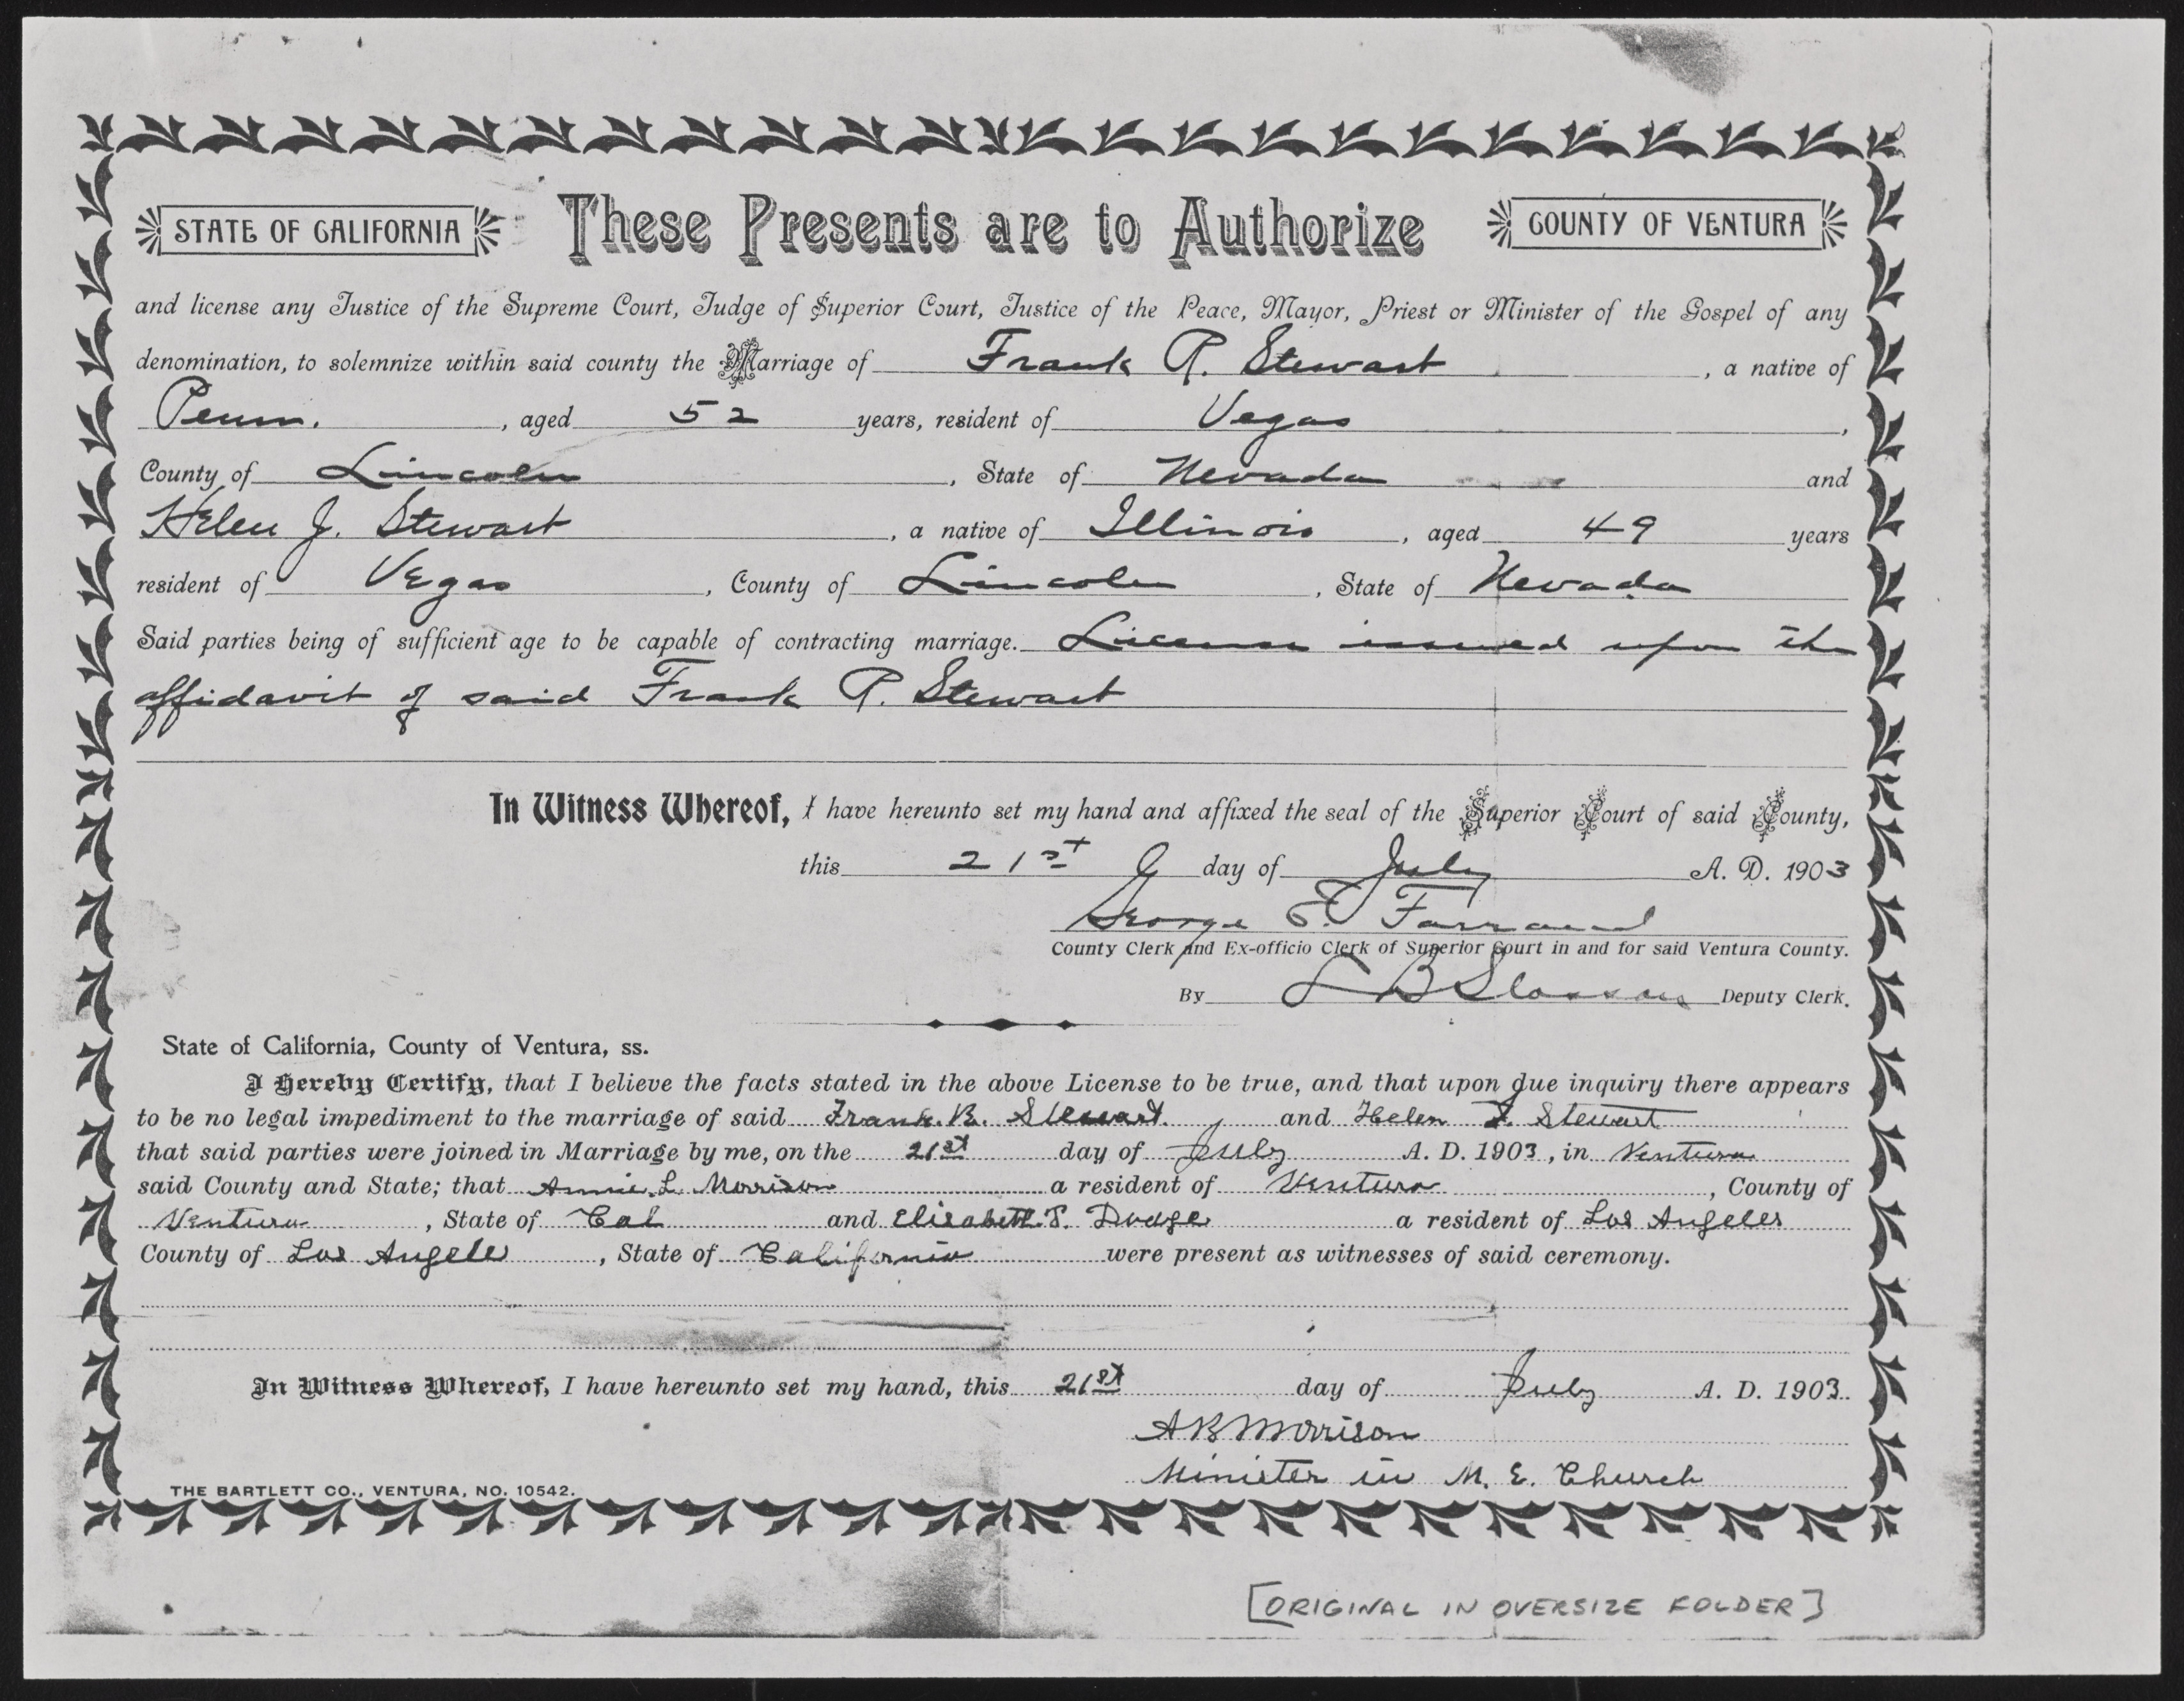 STATE OF CALIFORNIA These Presents are to Authorize COUNTY OF VENTURA
and license any Justice of the Supreme Court, Judge of Superior Court, Justice of the Peace, Mayor, Priest or Minister of the Gospel of any
denomination, to solemnize within said county the Marriage of Frank R. Stewart, a native of
Penn., aged 52 years, resident of Vegas,
County of Lincoln, State of Nevada and
Helen J. Stewart, a native of Illinois, aged 49 years
resident of Vegas, County of Lincoln, State of Nevada
Said parties being of sufficient age to be capable of contracting marriage. License issued upon the
affidavit of said Frank R. Stewart
In Witness Whereof, I have hereunto set my hand and affixed the seal of the Superior Court of said County,
this 21st day of July A. D. 1903
George E. Farrand
County Clerk and Ex-officio Clerk of Superior Court in and for said Ventura County.
By L B Slosson Deputy Clerk.
State of California, County of Ventura, ss.
I Hereby Certify, that I believe the facts stated in the above License to be true, and that upon due inquiry there appears
to be no legal impediment to the marriage of said Frank R. Stewart. and Helen J. Stewart
that said parties were joined in Marriage by me, on the 21st day of July A. D. 1903, in Ventura
said County and State; that Annie L. Morrison a resident of Ventura, County of
Ventura, State of Cal and Elizabeth S. Dodge a resident of Los Angeles
County of Los Angeles, State of California were present as witnesses of said ceremony.
In Witness Whereof, I have hereunto set my hand, this 21st day of July A. D. 1903.
A B Morrison
Minister in M. E. Church
THE BARTLETT CO., VENTURA, NO. 10542.
[ORIGINAL IN OVERSIZE FOLDER]